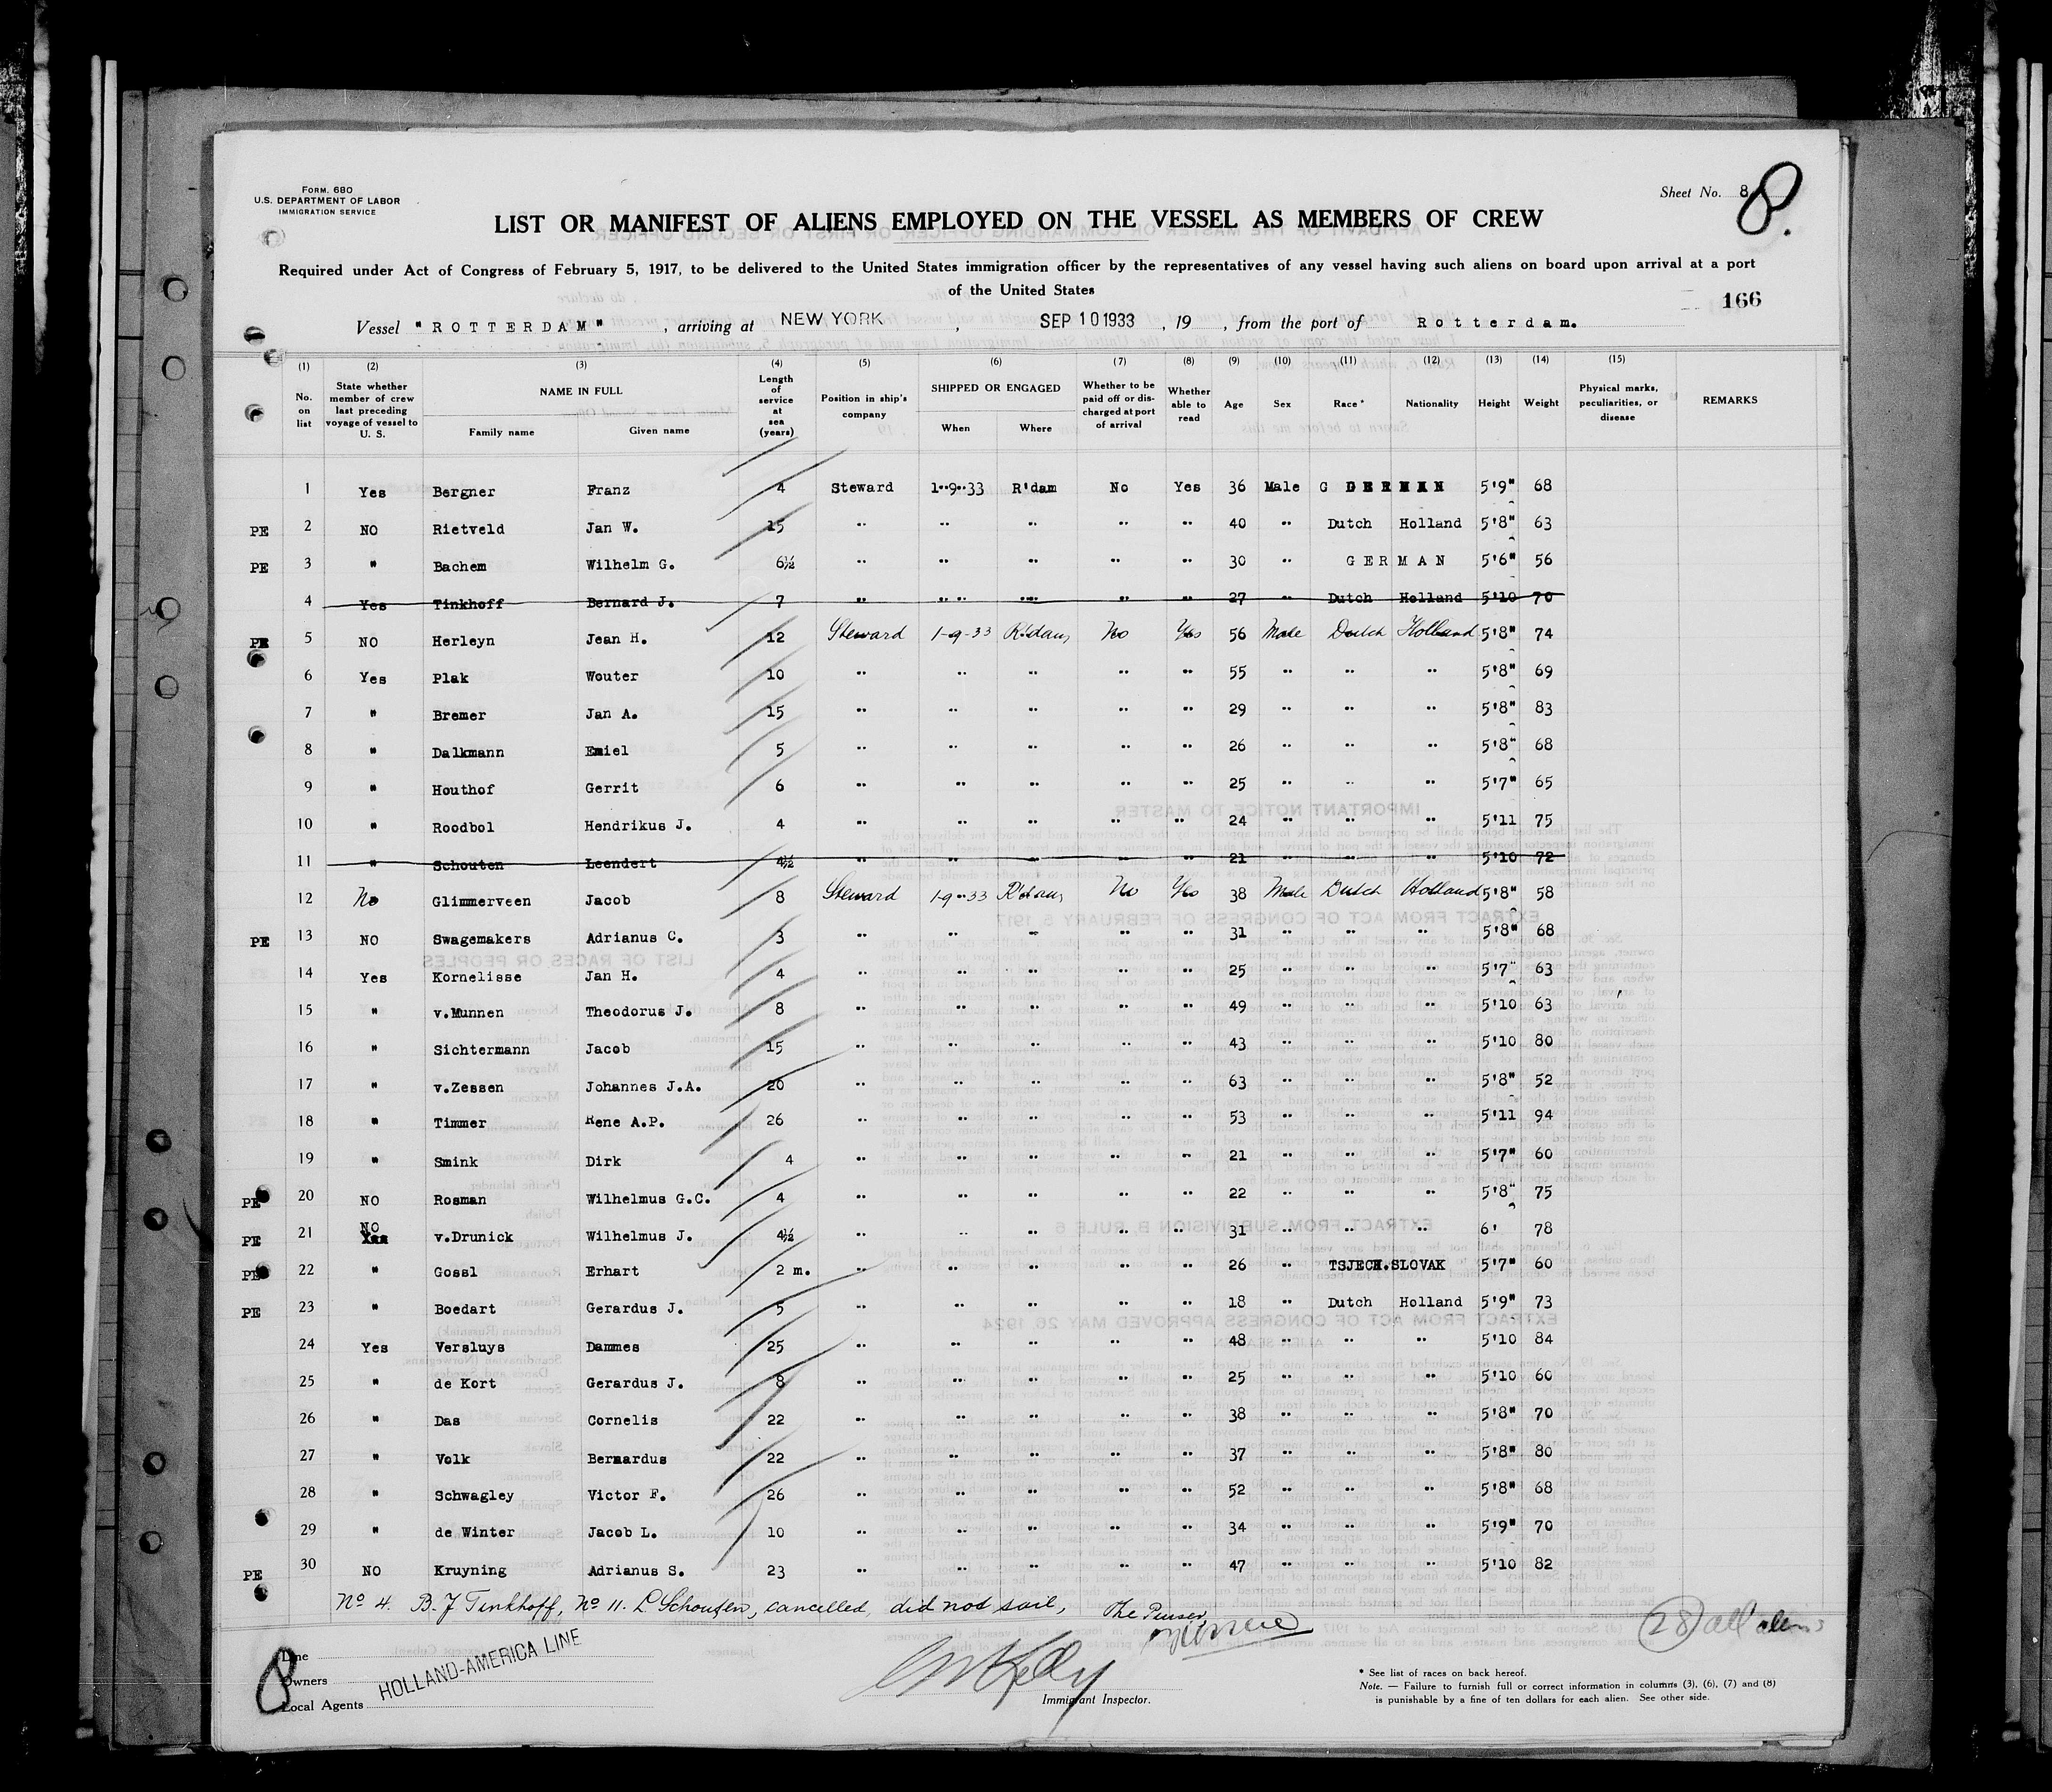 FORM. 680
U.S. DEPARTMENT OF LABOR
IMMIGRATION SERVICE
Sheet No. 8
8.
LIST OR MANIFEST OF ALIENS EMPLOYED ON THE VESSEL AS MEMBERS OF CREW
Required under Act of Congress of February 5, 1917, to be delivered to the United States immigration officer by the representatives of any vessel having such aliens on board upon arrival at a port
of the United States
166
Vessel "ROTTERDAM", arriving at NEW YORK, SEP 10 1933, 19 , from the port of Rotterdam.
(1) (2) (3) (4) (5) (6) (7) (8) (9) (10) (11) (12) (13) (14) (15)
No. on list State whether member of crew last preceding voyage of vessel to U. S. NAME IN FULL Family name Given name Length of service at sea (years) Position in ship's company SHIPPED OR ENGAGED When Where Whether to be paid off or discharged at port of arrival Whether able to read Age Sex Race* Nationality Height Weight Physical marks, peculiarities, or disease REMARKS
1 Yes Bergner Franz 4 Steward 1-9-33 R'dam No Yes 36 Male G GERMAN 5'9" 68
PE 2 NO Rietveld Jan W. 15 " " " " " 40 " Dutch Holland 5'8" 63
PE 3 " Bachem Wilhelm G. 6½ " " " " " 30 " GERMAN 5'6" 56
4 Yes Tinkhoff Bernard J. 7 " " " " " 27 " Dutch Holland 5'10 70
PE 5 NO Herleyn Jean H. 12 Steward 1-9-33 R'dam No Yes 56 Male Dutch Holland 5'8" 74
6 Yes Plak Wouter 10 " " " " " 55 " " " 5'8" 69
7 " Bremer Jan A. 15 " " " " " 29 " " " 5'8" 83
8 " Dalkmann Emiel 5 " " " " " 26 " " " 5'8" 68
9 " Houthof Gerrit 6 " " " " " 25 " " " 5'7" 65
10 " Roodbol Hendrikus J. 4 " " " " " 24 " " " 5'11 75
11 " Schouten Leendert 4½ " " " " " 21 " " " 5'10 72
12 No Glimmerveen Jacob 8 Steward 1-9-33 R'dam No Yes 38 Male Dutch Holland 5'8" 58
PE 13 NO Swagemakers Adrianus C. 3 " " " " " 31 " " " 5'8" 68
14 Yes Kornelisse Jan H. 4 " " " " " 25 " " " 5'7" 63
15 " v.Munnen Theodorus J. 8 " " " " " 49 " " " 5'10 63
16 " Sichtermann Jacob 15 " " " " " 43 " " " 5'10 80
17 " v.Zessen Johannes J.A. 20 " " " " " 63 " " " 5'8" 52
18 " Timmer Rene A.P. 26 " " " " " 53 " " " 5'11 94
19 " Smink Dirk 4 " " " " " 21 " " " 5'7" 60
PE 20 NO Rosman Wilhelmus G.C. 4 " " " " " 22 " " " 5'8" 75
PE 21 NO v.Drunick Wilhelmus J. 4½ " " " " " 31 " " " 6' 78
PE 22 " Gossl Erhart 2 m. " " " " " 26 " TSJECH.SLOVAK 5'7" 60
PE 23 " Boedart Gerardus J. 5 " " " " " 18 " Dutch Holland 5'9" 73
24 Yes Versluys Dammes 25 " " " " " 48 " " " 5'10 84
25 " de Kort Gerardus J. 8 " " " " " 25 " " " 5'10 60
26 " Das Cornelis 22 " " " " " 38 " " " 5'8" 70
27 " Volk Bernardus 22 " " " " " 37 " " " 5'8" 80
28 " Schwagley Victor F. 26 " " " " " 52 " " " 5'8" 68
29 " de Winter Jacob L. 10 " " " " " 34 " " " 5'9" 70
PE 30 NO Kruyning Adrianus S. 23 " " " " " 47 " " " 5'10 82
No 4. B. J Tinkhoff, No 11. L Schouten, cancelled, did not sail, The Purser,
28 all aliens
8
Line
Owners
Local Agents
HOLLAND-AMERICA LINE
Immigrant Inspector.
* See list of races on back hereof.
Note. — Failure to furnish full or correct information in columns (3), (6), (7) and (8)
is punishable by a fine of ten dollars for each alien. See other side.